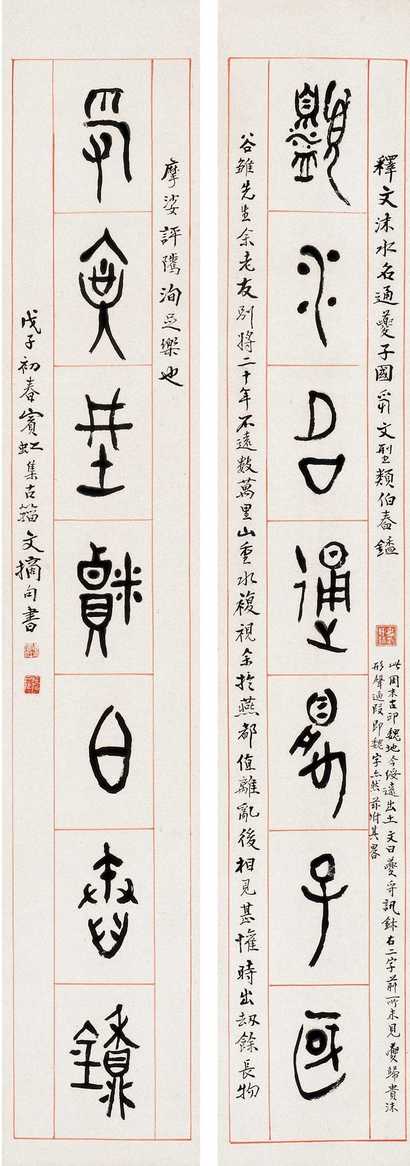 釋文沬水名通夔子國爵文型類伯舂鑪
此周末古印魏地今綏遠出土文曰夔爵訊鉥右二字前所未見夔歸貴沬
形聲通叚即魏字亦然茲附其畧
沬水名通夔子國
谷雛先生余老友別將二十年不遠數萬里山重水複視余於燕都值離亂後相見甚懽時出劫餘長物
摩挲評騭洵足樂也
戊子初春賓虹集古籀文摘句書